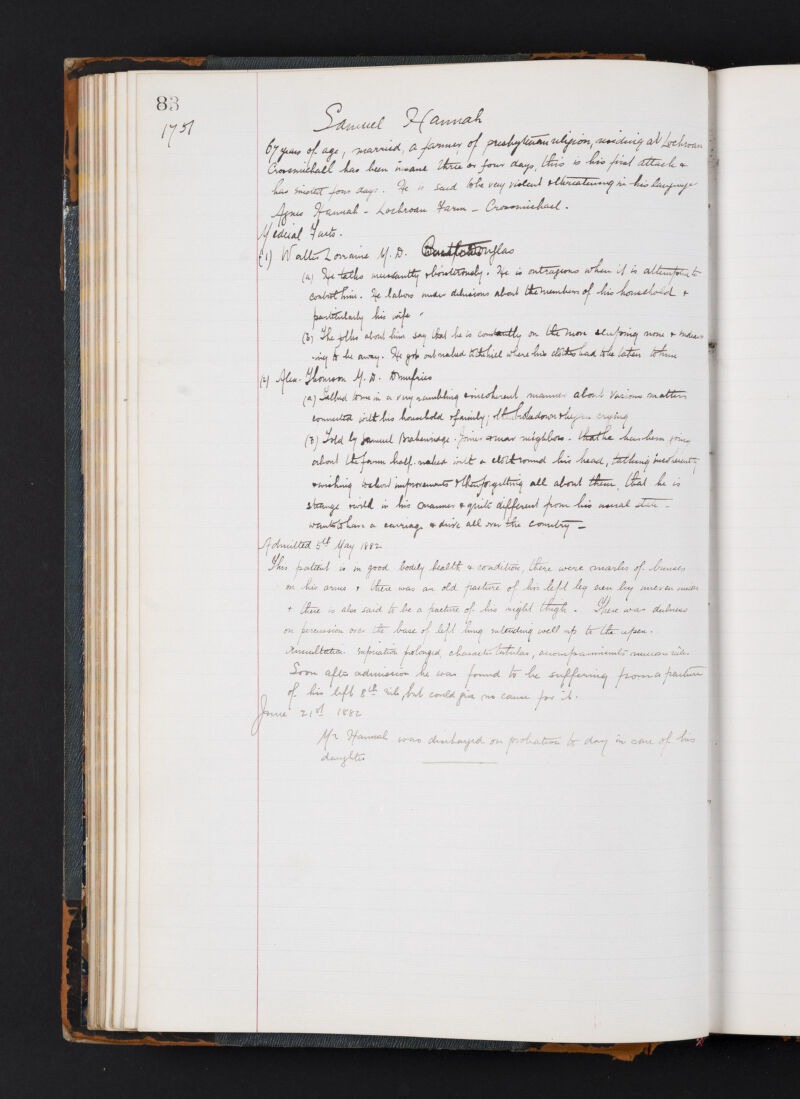 83
1751
Samuel Hannah
67 years of age, married, a farmer, of presbyterian religion, residing at Lochroan
Crossmichael has been insane three or four days, this is his first attack &
has existed four days. He is said to be very violent & threatening in his language
Agnes Hannah - Lochroan Farm - Crossmichael.
Medical Facts.
(1) Walter Lorraine M.D. Castle Douglas
(a) He talks incessantly & boisterously. He is outrageous when it is attempted to
control him. He labors under delusions about the members of his household &
particularly his wife.
(B) The folks about him say that he is constantly on the move & endeavor
-ing to be away. He got out naked to the field where his clothes had to be taken to him
(2) Alex. Thomson M.D. Dumfries
(a) Talked to me in a very rambling & incoherent manner about various matters
connected with his household & family; & began crying
(B) Told by Samuel near neighbor. that he has been going
about the farm half-naked with a cloth round his head, talking incoherently,
& wishing improvements & then forgetting all about them, that he is
strange & wild in his manner & quite different from his usual state.
wants to have a carriage & drive all over the country -
Admitted 5th May 1882
This patient is in good bodily health & condition, there were marks of bruises
on his arms & there was an old fracture of his left leg
& there is also said to be a fracture of his right thigh. There was dulness
on percussion over the base of left lung extending well up to the apex.
Auscultation expiration prolonged, character tubular, accompaniments mucous rales.
Soon after admission he was found to be suffering from a fracture
of his left 8th rib, but could give no cause for it.
June 21st 1882
Mr Hannah was discharged on probation to day in care of his
daughter